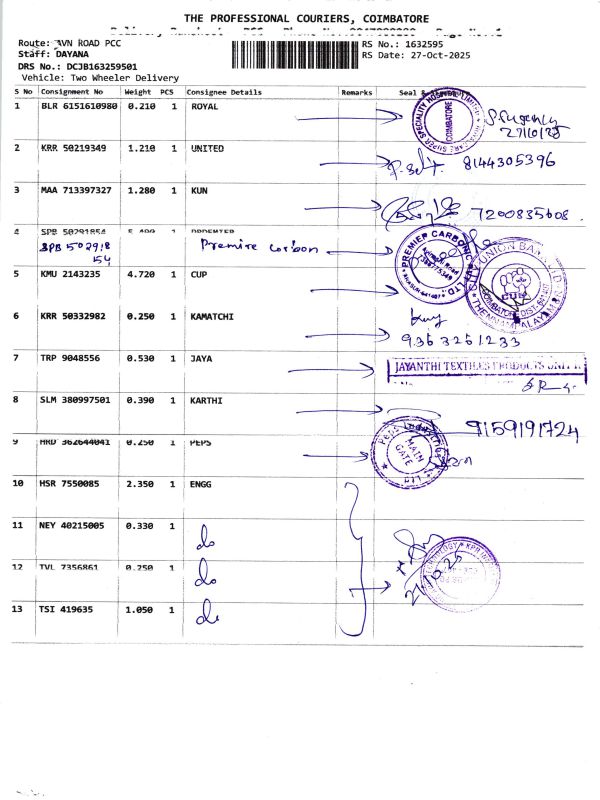 THE PROFESSIONAL COURIERS, COIMBATORE
Route: AVN ROAD PCC
Staff: DAYANA
DRS No.: DCJB163259501
Vehicle: Two Wheeler Delivery
RS No.: 1632595
RS Date: 27-Oct-2025
S No Consignment No Weight PCS Consignee Details Remarks Seal &
1 BLR 6151610980 0.210 1 ROYAL
SUPER SPECIALITY HOSPITAL
COIMBATORE
27/10/25
2 KRR 50219349 1.210 1 UNITED
8144305396
3 MAA 713397327 1.280 1 KUN
7200835608
4 SPB 50291854 5.400 1 PREMIER
SPB 502918
54
Premire carbon
PREMIER CARBONIC
LTD.
5 KMU 2143235 4.720 1 CUP
CITY UNION BANK LTD
CUB
COIMBATORE DIST-641407
THENNAMPALAYAM
6 KRR 50332982 0.250 1 KAMATCHI
9363261233
7 TRP 9048556 0.530 1 JAYA
JAYANTHI TEXTILES PRODUCTS UNIT II
8 SLM 380997501 0.390 1 KARTHI
9159191724
9 HRD 362644041 0.250 1 PEPS
Peps Industries
MAIN
GATE
10 HSR 7550085 2.350 1 ENGG
11 NEY 40215005 0.330 1
do
12 TVL 7356861 0.250 1
do
13 TSI 419635 1.050 1
do
KPR